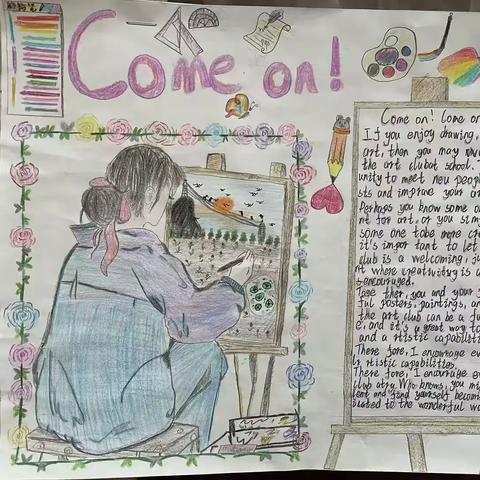 Come on!
Come on! Come on
If you enjoy drawing,
art, then you may
the art club at school. T
unity to meet new peop
sts and improve your ar
Perhaps you know some o
nt for art. or you sim
some one to be more cr
it's impor tant to let
club is a welcoming, ju
nt where creativity is
s encouraged.
Toge ther, you and your
ful posters, paintings, an
the art club can be a fu
e, and it's a great way to
and a rtistic capabilit
There fore, I encourage ev
ir rtistic capabilities.
There fore, I encourage ev
club a try. Who knows, you mi
lent and find yourself becomi
icated to the wonderful wo